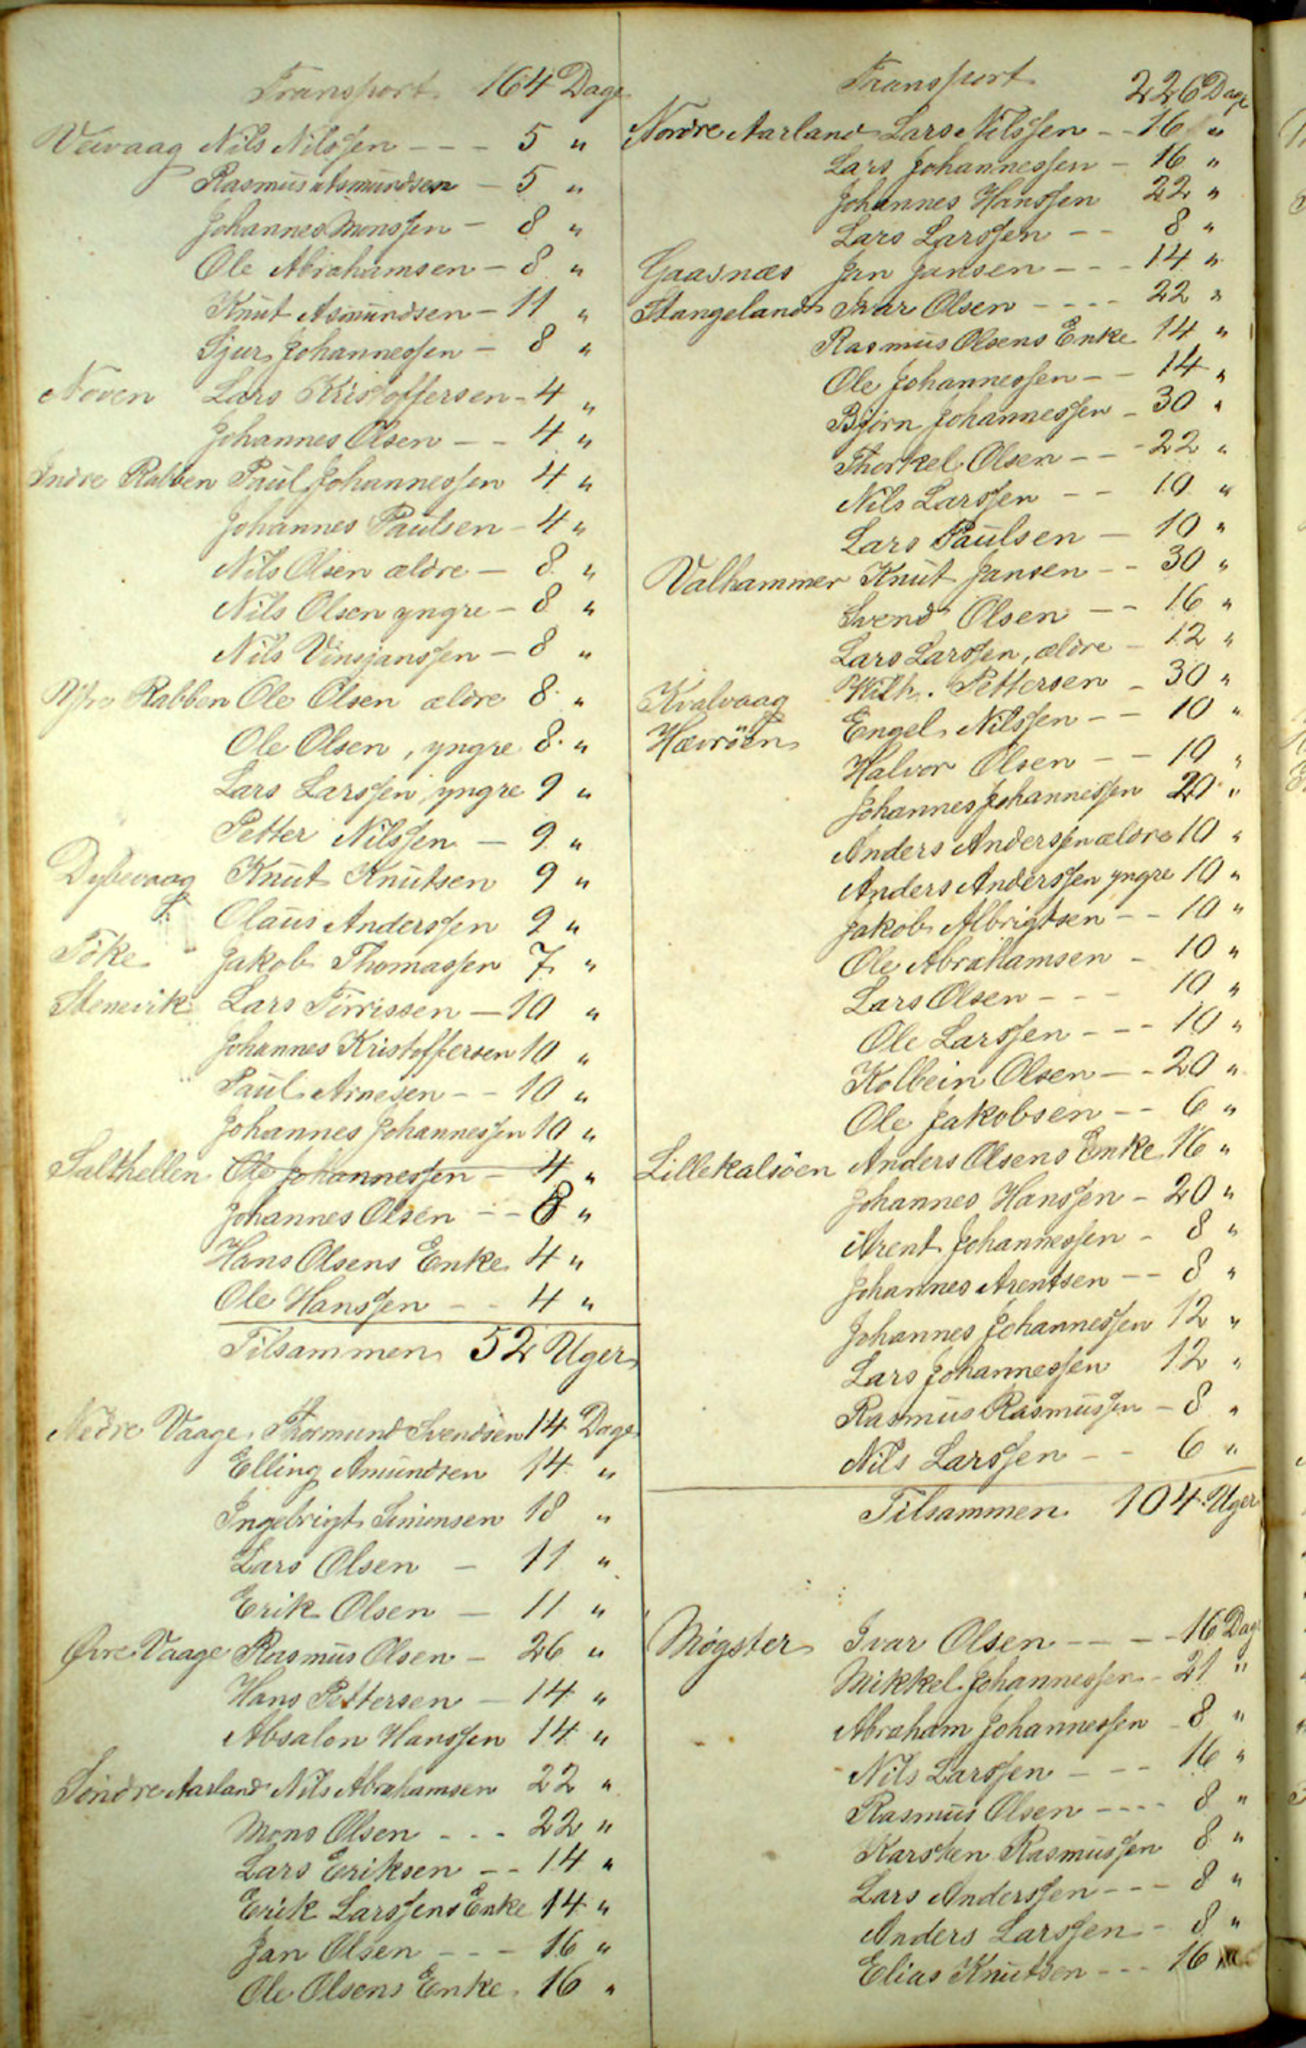 Transport 164 Dage
Veivaag Nils Nilssen - - - 5 "
Rasmus Asmundsen - 5 "
Johannes Monssen - 8 "
Ole Abrahamsen - 8 "
Knut Asmundsen - 11 "
Sjur Johannessen - 8 "
Noven Lars Kristoffersen - 4 "
Johannes Olsen - - 4 "
Indre Rabben Paul Johannessen 4 "
Johannes Paulsen - 4 "
Nils Olsen ældre - 8 "
Nils Olsen yngre - 8 "
Nils Vinsjanssen - 8 "
Rabben Ole Olsen ældre 8 "
Ole Olsen, yngre 8 "
Lars Larssen, yngre 9 "
Petter Nilssen - 9 "
Dybevaag Knut Knutsen 9 "
Olaus Anderssen 9 "
Töke Jakob Thomassen 7 "
Stenevik Lars Törrissen - 10 "
Johannes Kristoffersen 10 "
Paul Arnesen - - 10 "
Johannes Johannessen 10 "
Salthellen Ole Johannessen - 4 "
Johannes Olsen - - 8 "
Hans Olsens Enke 4 "
Ole Hanssen - - 4 "
Tilsammen 52 Uger
Nedre Vaage Thormund Svendsen 14 Dage
Elling Amundsen 14 "
Ingebrigt Simonsen 18 "
Lars Olsen - 11 "
Erik Olsen - 11 "
Øvre Vaage Rasmus Olsen - 26 "
Hans Pettersen - 14 "
Absalon Hanssen 14 "
Söndre Aarland Nils Abrahamsen 22 "
Mons Olsen - - - 22 "
Lars Eriksen - - 14 "
Erik Larssens Enke 14 "
Jan Olsen - - - 16 "
Ole Olsens Enke 16 "
Transport 226 Dage
Nordre Aarland Lars Nilssen - - 16 "
Lars Johannessen - 16 "
Johannes Hanssen 22 "
Lars Larssen - - 8 "
Gaasnæs Jan Jansen - - - 14 "
Stangeland Ivar Olsen - - - - 22 "
Rasmus Olsens Enke 14 "
Ole Johannessen - - 14 "
Björn Johannessen - 30 "
Thorkel Olsen - - - 22 "
Nils Larssen - - 10 "
Lars Paulsen - 10 "
Valhammer Knut Jansen - - 30 "
Svend Olsen - - 16 "
Lars Larssen, ældre - 12 "
Kvalvaag Wilh. Pettersen - 30 "
Hævröen Engel Nilssen - - 10 "
Halvor Olsen - - 10 "
Johannes Johannessen 20 "
Anders Anderssen ældre 10 "
Anders Anderssen yngre 10 "
Jakob Albrigtsen - - 10 "
Ole Abrahamsen - 10 "
Lars Olsen - - - 10 "
Ole Larssen - - - 10 "
Kolbein Olsen - - 20 "
Ole Jakobsen - - 6 "
Lillekalsöen Anders Olsens Enke 16 "
Johannes Hanssen - 20 "
Arent Johannessen - 8 "
Johannes Arentsen - - 8 "
Johannes Johannessen 12 "
Lars Johannessen 12 "
Rasmus Rasmussen - 8 "
Nils Larssen - - 6 "
Tilsammen 104 Uger
Møgster Ivar Olsen - - - - 16 Dag
Mikkel Johannessen - 21 "
Abraham Johannessen - 8 "
Nils Larssen - - - 16 "
Rasmus Olsen - - - - 8 "
Karsten Rasmussen 8 "
Lars Anderssen - - - 8 "
Anders Larssen - 8 "
Elias Knutsen - - - 16